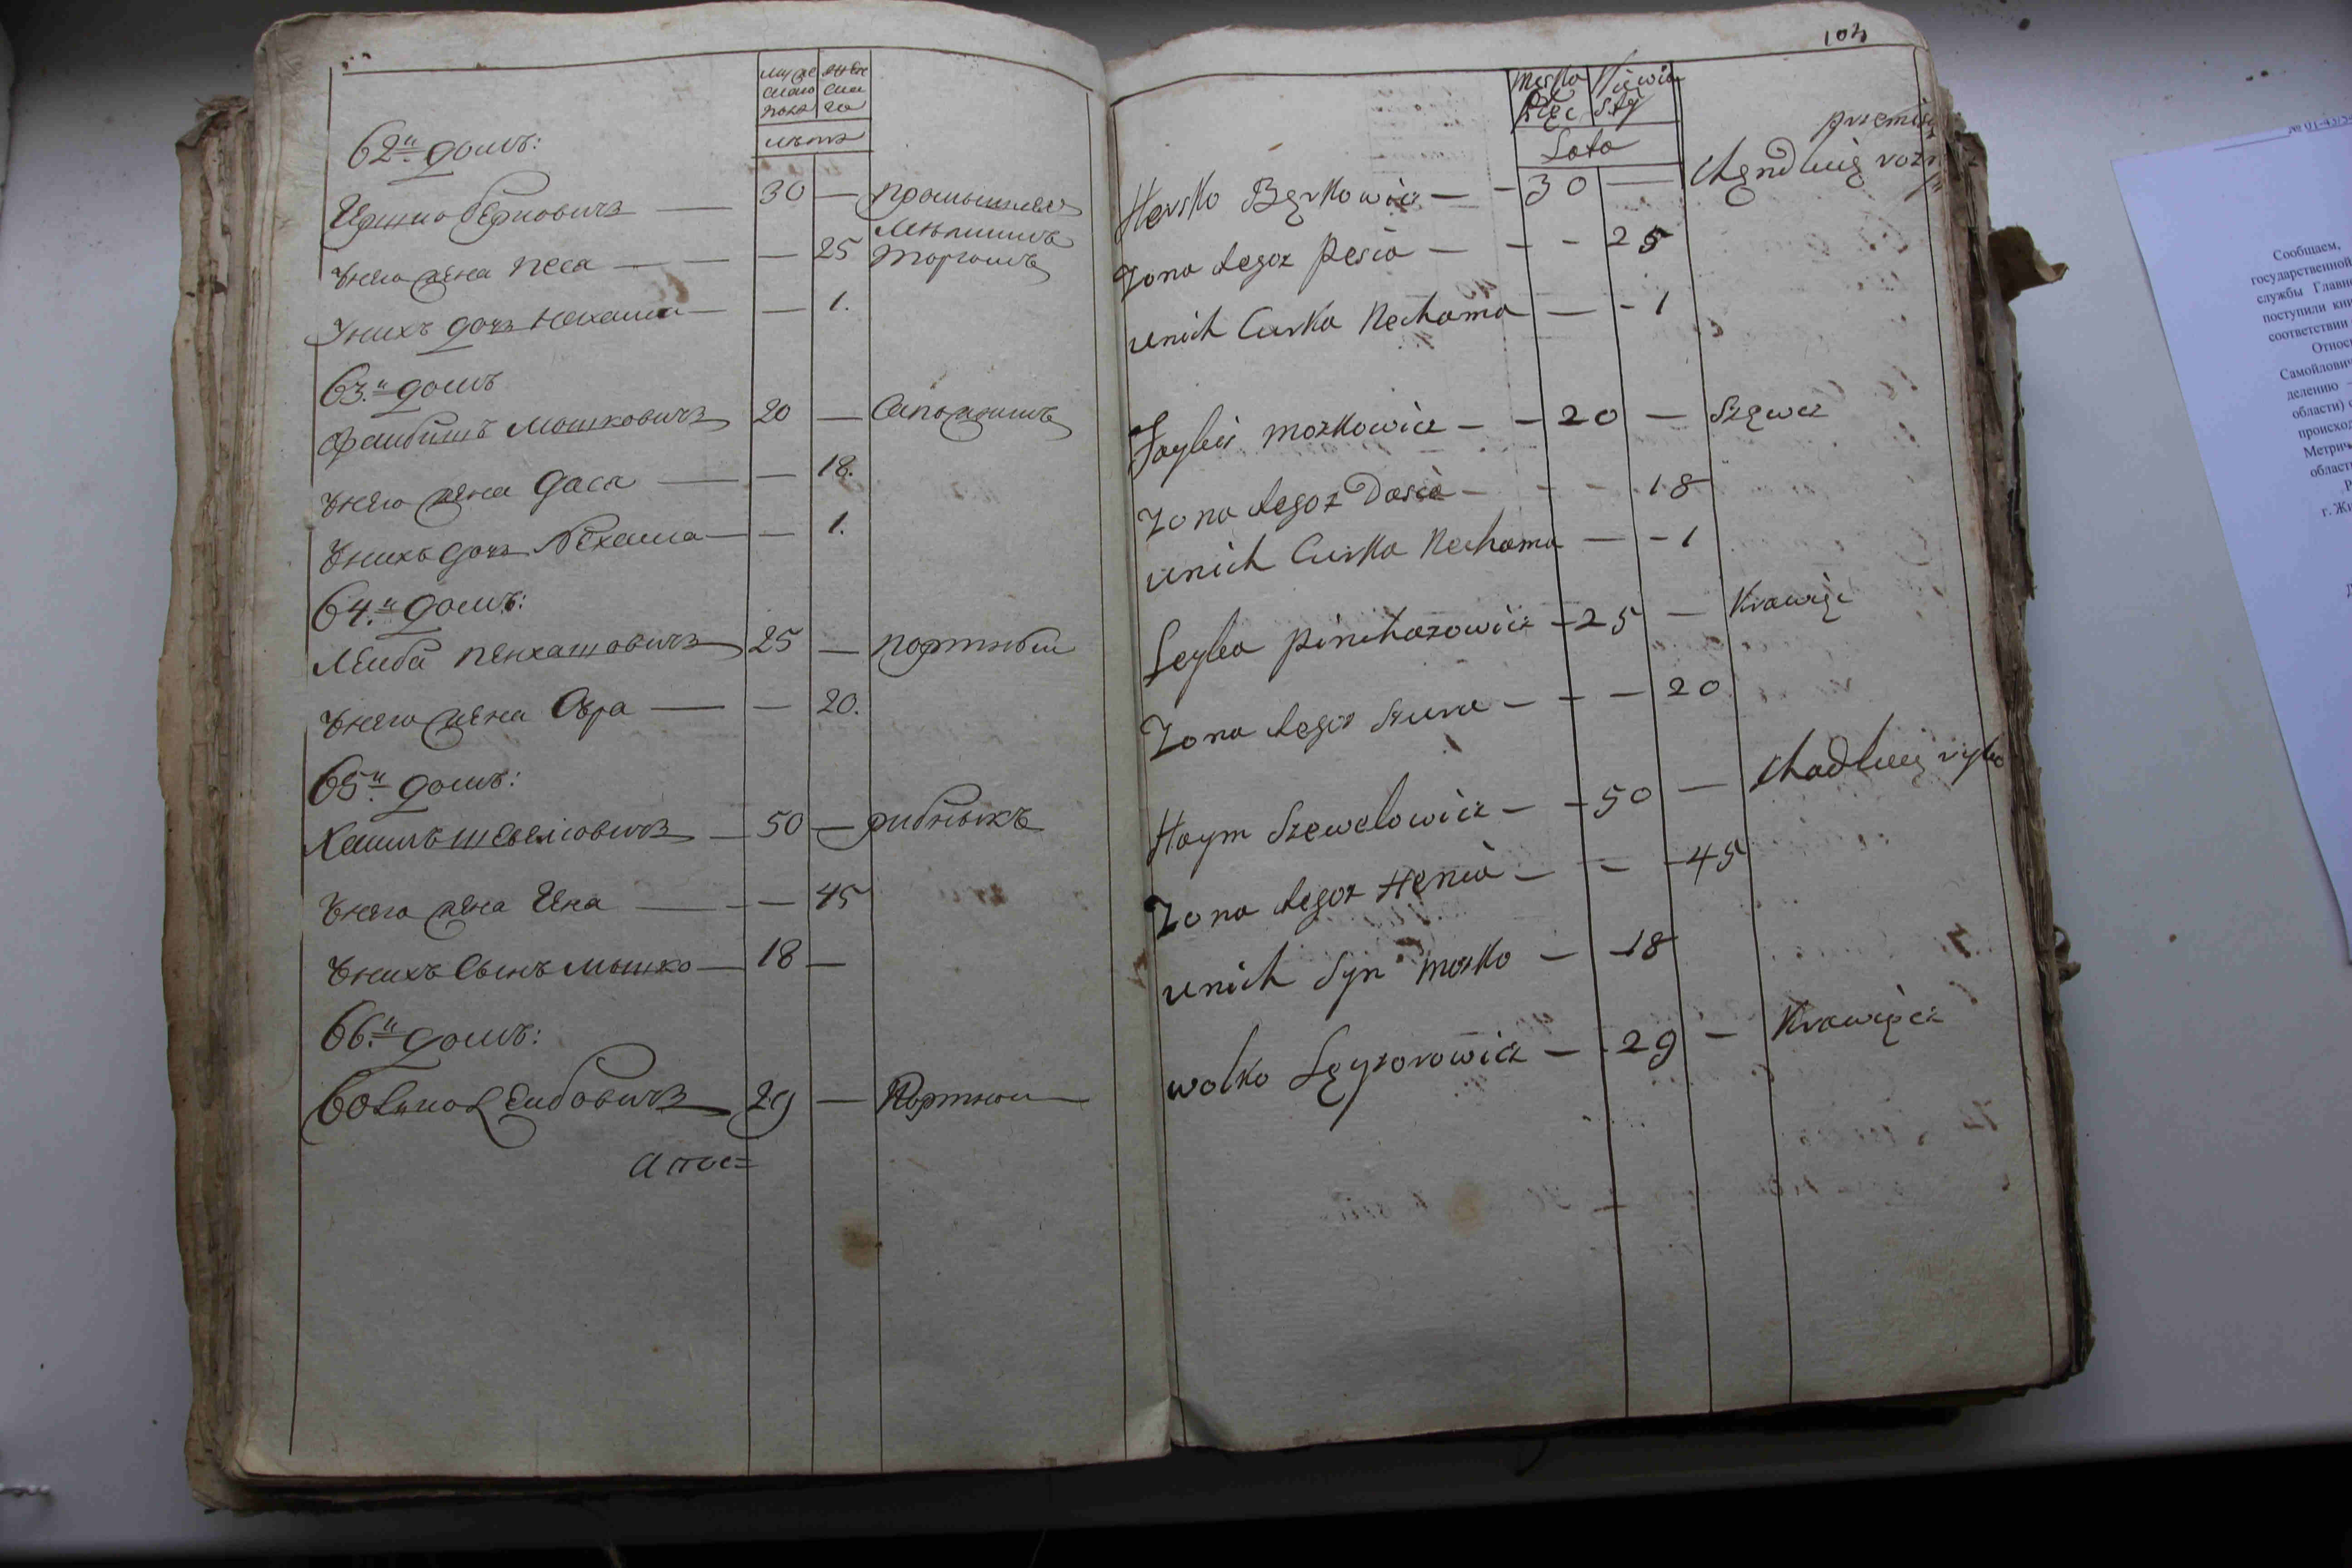 муже женс
ска ска
пола го
лѣта
62й домъ:
Гершко Берковичъ — 30 — промышляе
мѣлкимъ
Унего жена Песа — — 25 торгомъ
Унихъ дочь Нехама — — 1.
63.й домъ
Файбишъ Мошковичъ 20 — Сапожникъ
Унего жена Дася — — 18.
Унихъ дочь Нехама — — 1.
64.й домъ:
Лейба Пенхасовичъ 25 — портный
Унего жена Сура — — 20.
65й домъ:
Хаимъ Шевелiовичъ — 50 — рибныкъ
Унего жена Гена — — 45
Унихъ Сынъ Мошко — 18 —
66.й домъ:
Волько Лейбовичъ 29 — Портной
104
Mesko Niewia
Płec Stey
Lata
przemisł
Hersko Berkowicz — — 30 — Handluię rozn
Zona Jegoz Pesia — — — 25
unich Curka Nechama — — 1
Faybis Moszkowicz — — 20 — Szewcz
Zona Jegoz Dasia — — — 18
unich Curka Nechama — — 1
Leyba Pinchasowicz — 25 — Krawiec
Zona Jegoz Szura — — — 20
Haym Szewelowicz — — 50 — Handluię rybo
Zona Jegoz Henia — — — 45
unich Syn Mosko — — 18
Wolko Leyzorowicz — 29 — Krawięcz
№ 01-43/34
Сообщаем,
государственной
службы Главн
поступили кни
соответствии
Относ
Самойлович
делению
области) с
происход
Метрич
област
Р
г. Жи